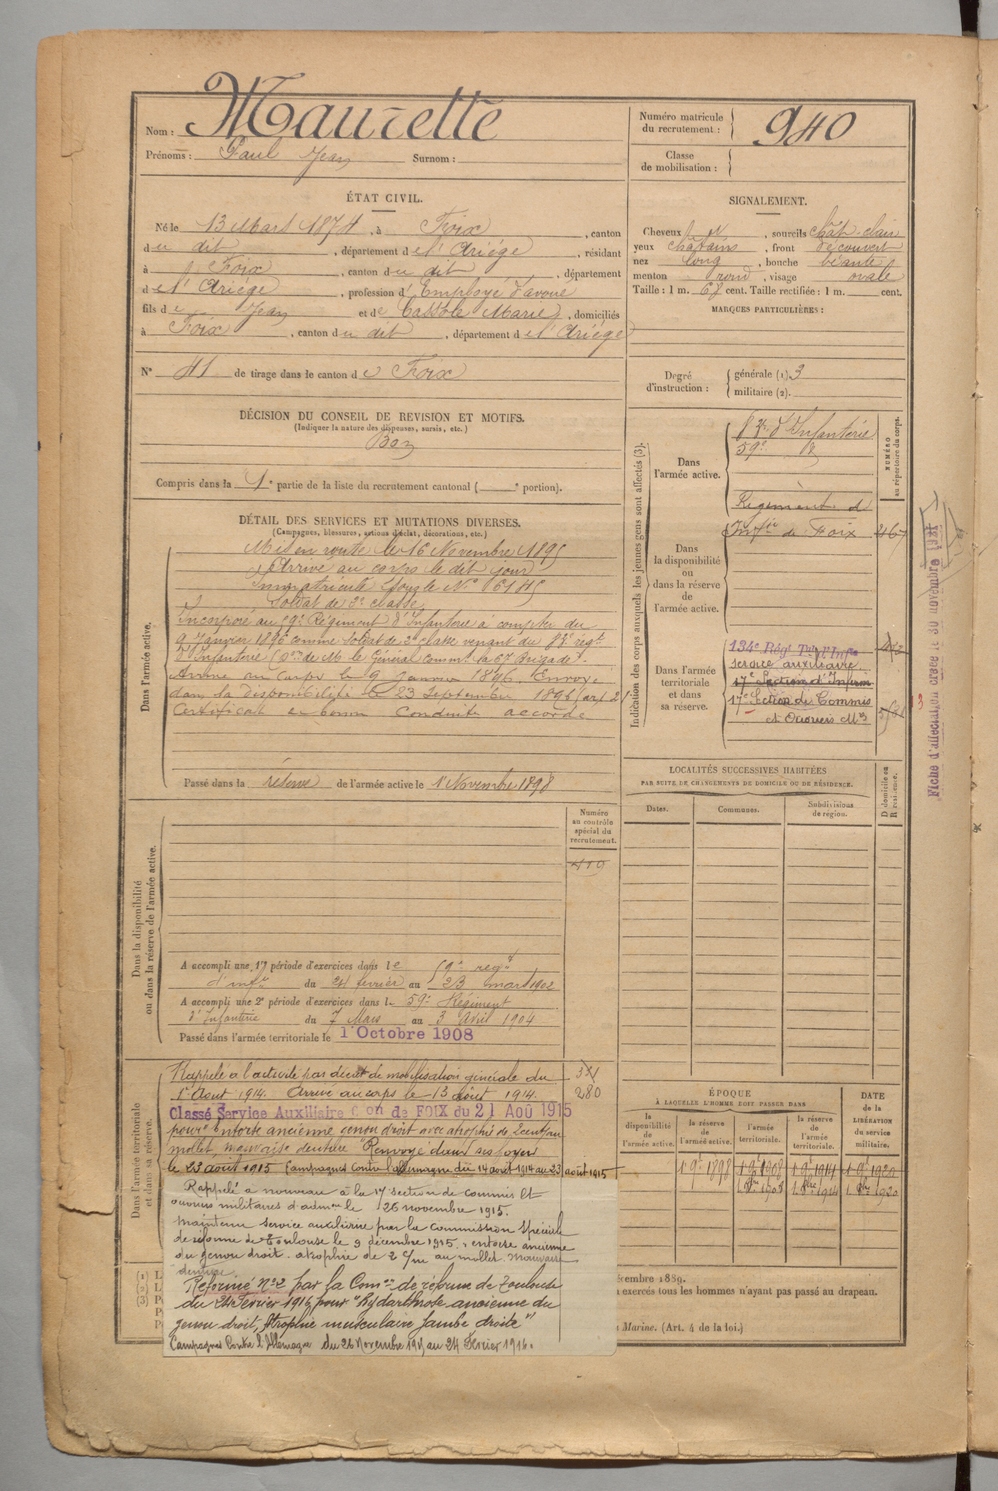 Nom : Maurette
Prénoms : Paul Jean Surnom :
Numéro matricule du recrutement : 940
Classe de mobilisation :
ÉTAT CIVIL.
Né le 13 Mars 1874, à Foix, canton
du dit, département de l'Ariège, résidant
à Foix, canton du dit, département
de l'Ariège, profession d'Employé d'avoué
fils de Jean et de Cassole Marie, domiciliés
à Foix, canton du dit, département de l'Ariège
N° 41 de tirage dans le canton de Foix
DÉCISION DU CONSEIL DE REVISION ET MOTIFS.
(Indiquer la nature des dispenses, sursis, etc.)
Bon
Compris dans la 1e partie de la liste du recrutement cantonal ( e portion).
SIGNALEMENT.
Cheveux, sourcils chât-clair
yeux châtains, front découvert
nez long, bouche béante
menton rond, visage ovale
Taille : 1 m. 68 cent. Taille rectifiée : 1 m. cent.
MARQUES PARTICULIÈRES :
Degré d'instruction :
générale (1). 3
militaire (2).
DÉTAIL DES SERVICES ET MUTATIONS DIVERSES.
(Campagnes, blessures, actions d'éclat, décorations, etc.)
Dans l'armée active.
Mis en route le 16 Novembre 1895
Arrivé au corps le dit jour
Immatriculé sous le N°
Soldat de 2e classe
Incorporé au 59e Régiment d'Infanterie à compter du
9 Janvier 1896 comme soldat de 2e classe venant du 83e régt
d'Infanterie (Don de M. le Général Commt la 67 Brigade).
Arrivé au Corps le 9 Janvier 1896. Envoyé
dans la disponibilité le 23 Septembre 1896 (art 21
Certificat de bonne conduite accordé
Passé dans la réserve de l'armée active le 1er Novembre 1898
Indication des corps auxquels les jeunes gens sont affectés (3).
NUMÉRO au répertoire du corps.
Dans l'armée active.
83e d'Infanterie
59e
Dans la disponibilité ou dans la réserve de l'armée active.
Régiment d
Inf.ie de Foix 467
Dans l'armée territoriale et dans sa réserve.
134e Régt Terr d'Infie
service auxiliaire
17e Section d'Infirm
17e Section de Commis
et Ouvriers Mres
Fiche d'affectation créée le 30 novembre
LOCALITÉS SUCCESSIVES HABITÉES
PAR SUITE DE CHANGEMENTS DE DOMICILE OU DE RÉSIDENCE.
Dates. Communes. Subdivisions de région. D domicile ou R résidence.
Dans la disponibilité ou dans la réserve de l'armée active.
Numéro au contrôle spécial du recrutement.
410
A accompli une 1re période d'exercices dans le 59e régt
d'infie du 24 février au 23 mars 1902
A accompli une 2e période d'exercices dans le 59e Régiment
d'Infanterie du 7 Mars au 3 Avril 1904
Passé dans l'armée territoriale le 1er Octobre 1908
Dans l'armée territoriale et dans sa réserve.
Rappelé à l'activité par décret de mobilisation générale du
1er Août 1914. Arrivé au corps le 13 août 1914. 280
Classé Service Auxiliaire Con de FOIX du 21 Aoû 1915
pour entorse ancienne genou droit avec atrophie de 2 cent au
mollet, mauvaise denture. Renvoyé dans ses foyers
le 23 août 1915 Campagnes contre l'Allemagne du 14 août 1914 au 23 août 1915
Rappelé à nouveau à la 17e section de commis et
ouvriers militaires d'admon le 26 novembre 1915.
Maintenu service auxiliaire par la commission spéciale
de réforme de Toulouse le 9 décembre 1915. "entorse ancienne
du genou droit. atrophie de 2 c/m au mollet. Mauvaise
denture
Réformé N°2 par la Comon de réforme de Toulouse
du 24 Février 1916 pour "Hydarthrose ancienne du
genou droit, Atrophie musculaire jambe droite"
Campagnes Contre l'Allemagne du 26 Novembre 191 au 24 Février 1916.
ÉPOQUE
À LAQUELLE L'HOMME DOIT PASSER DANS
la disponibilité de l'armée active.
la réserve de l'armée active.
l'armée territoriale.
la réserve de l'armée territoriale.
DATE de la LIBÉRATION du service militaire.
1 9e 1898 1 9e 1908 1 9e 1914 1 9e 1920
1 8bre 1908 1 8bre 1914 1 8bre 1920
(1)
(2)
(3)
décembre 1889.
exercés tous les hommes n'ayant pas passé au drapeau.
Marine. (Art. 4 de la loi.)